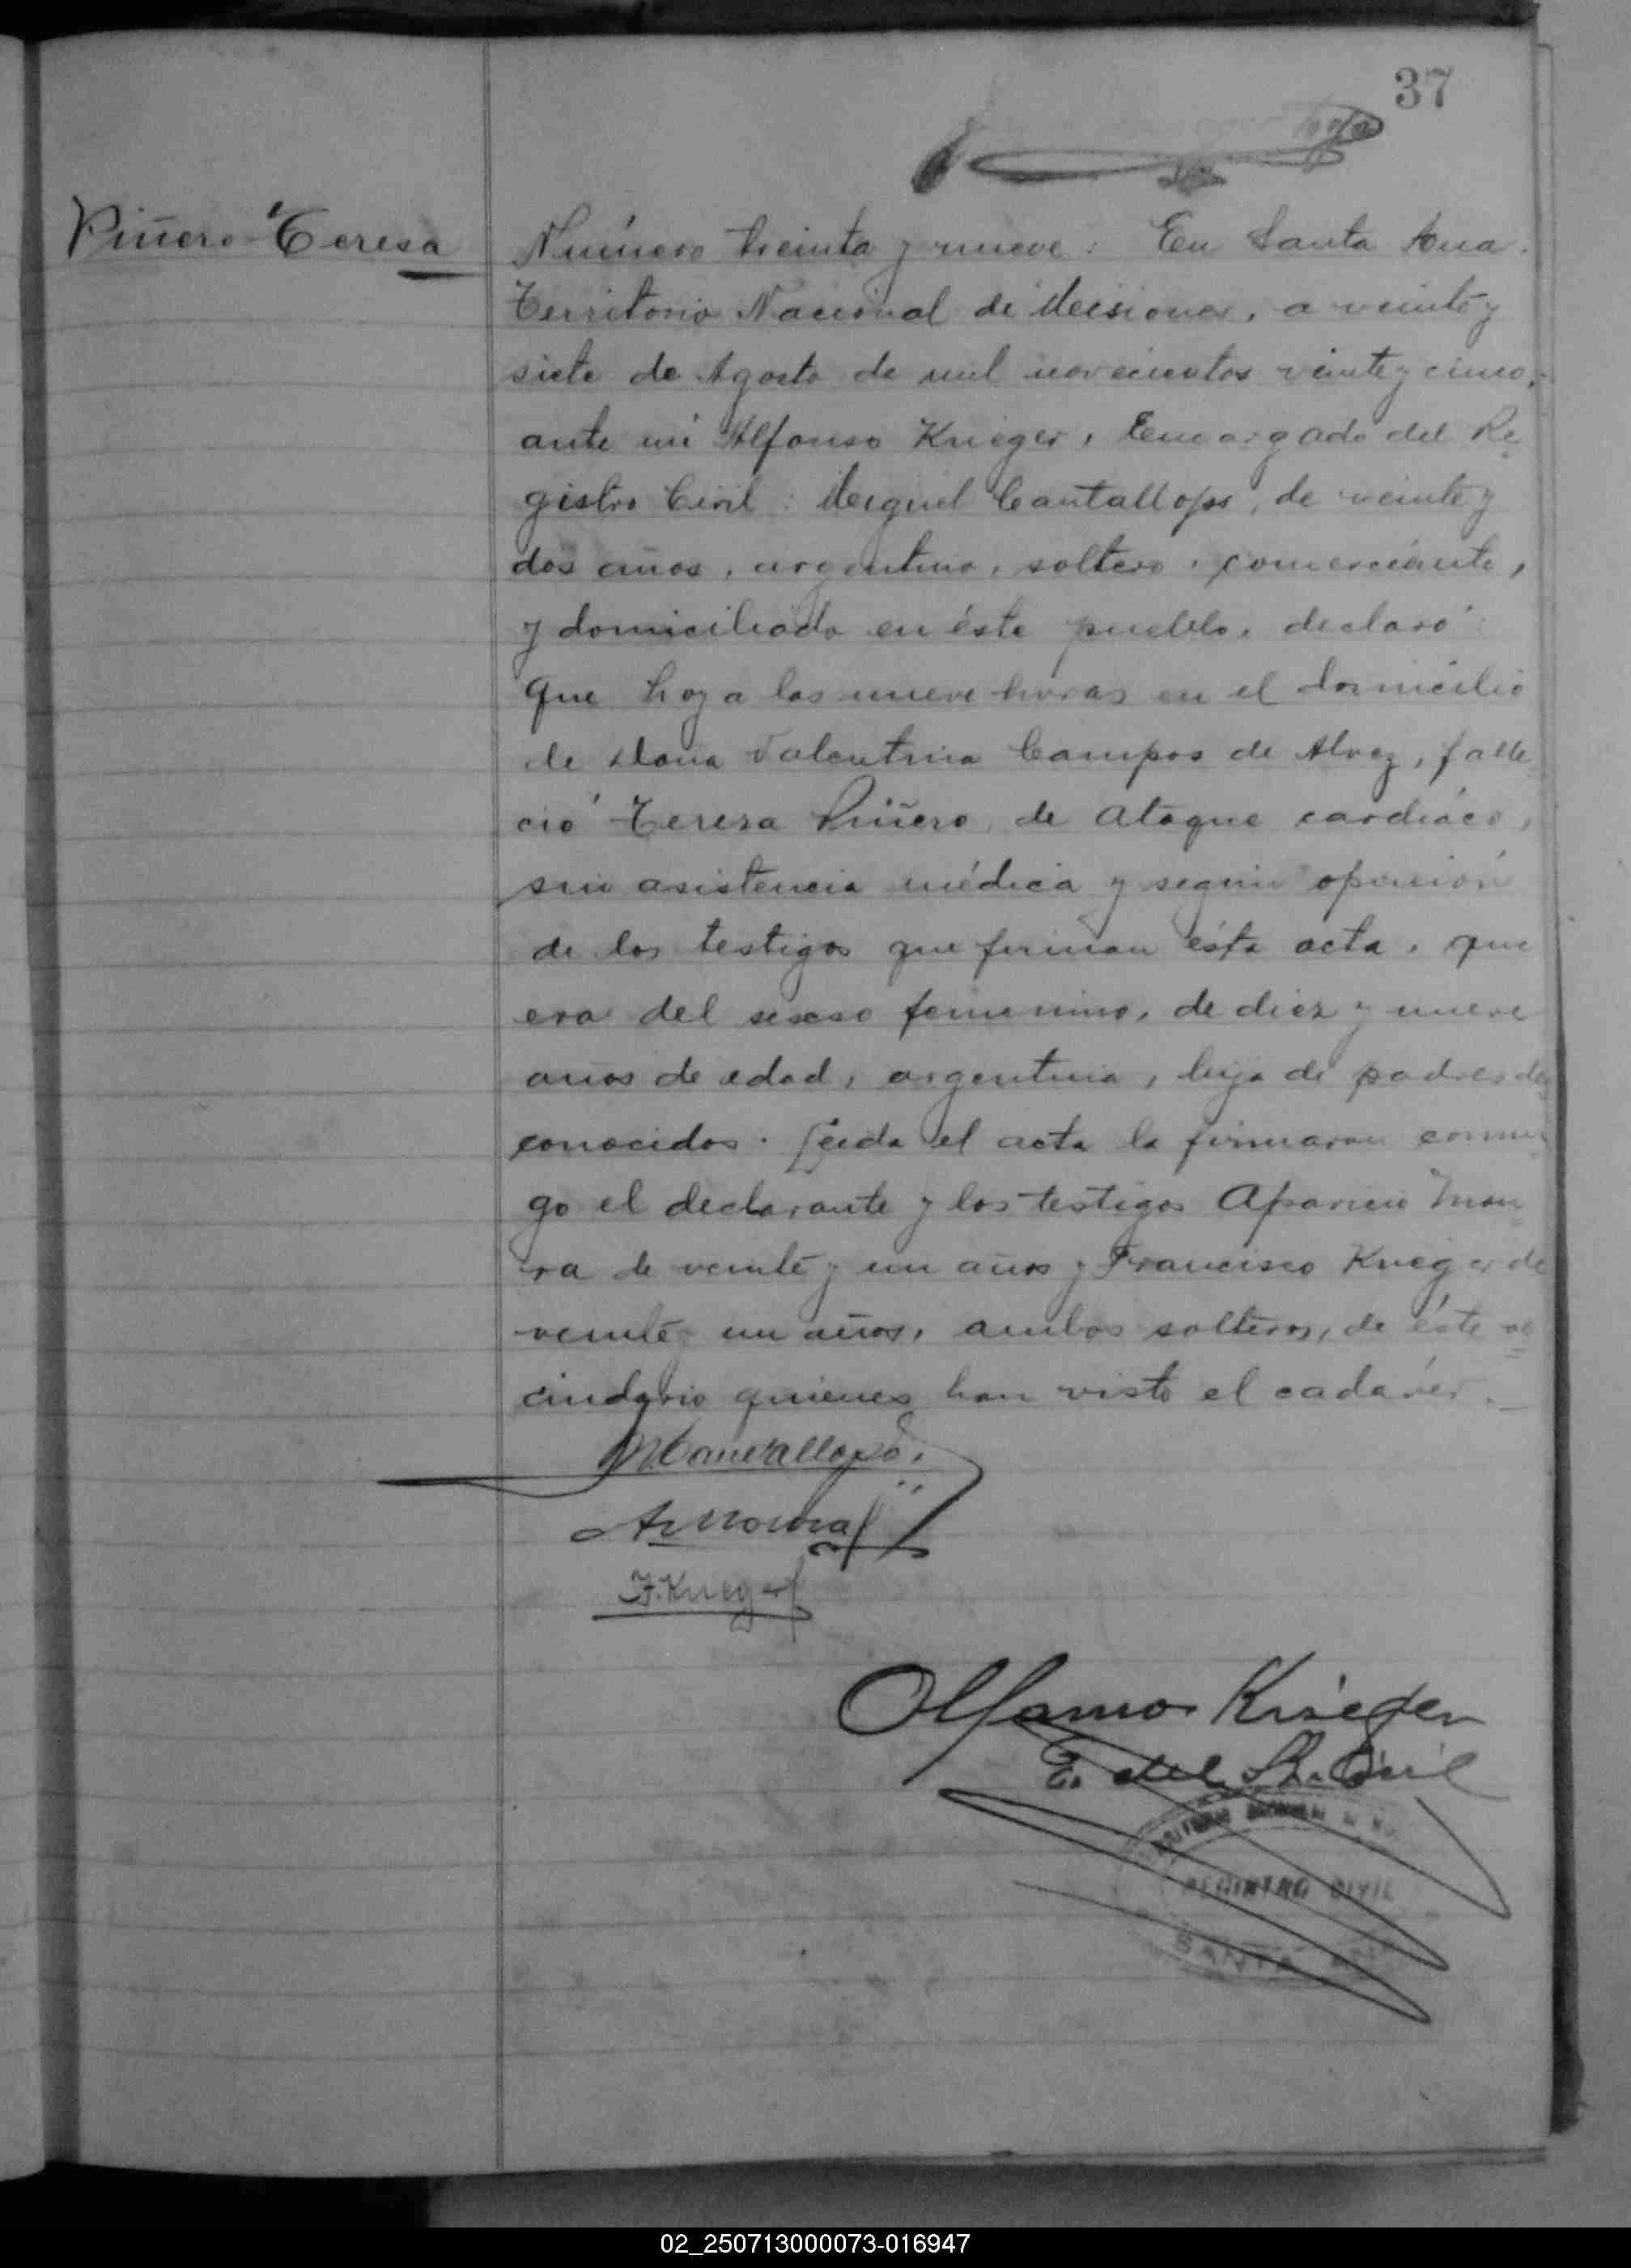 37
Piñero Teresa
Número treinta y nueve: En Santa Ana.
Territorio Nacional de Misiones, a veinte y
siete de Agosto de mil novecientos veinte y cinco,
ante mi Alfonso Krieger, Encargado del Re
gistro Civil: Miguel Cantallops, de veinte y
dos años, argentino, soltero, comerciante,
y domiciliado en éste pueblo, declaró:
Que hoy a las nueve horas en el domicilio
de Doña Valentina Campos de Alvez, falle
ció Teresa Piñero, de ataque cardiáco,
sin asistencia médica y segun opinión
de los testigos que firman ésta acta, que
era del sexso femenino, de diez y nueve
años de edad, argentina, hija de padres des
conocidos. Leida el acta la firmaron conmi
go el declarante y los testigos Aparicio Mou
ra de veinte y un años y Francisco Krieger de
veinte y un años, ambos solteros, de éste ve
cindario quienes han visto el cadáver.
MCantallops.
A. Moura
F. Krieger
Alfonso Krieger
E. del R. Civil
REGISTRO CIVIL
SANTA ANA
02_250713000073-016947